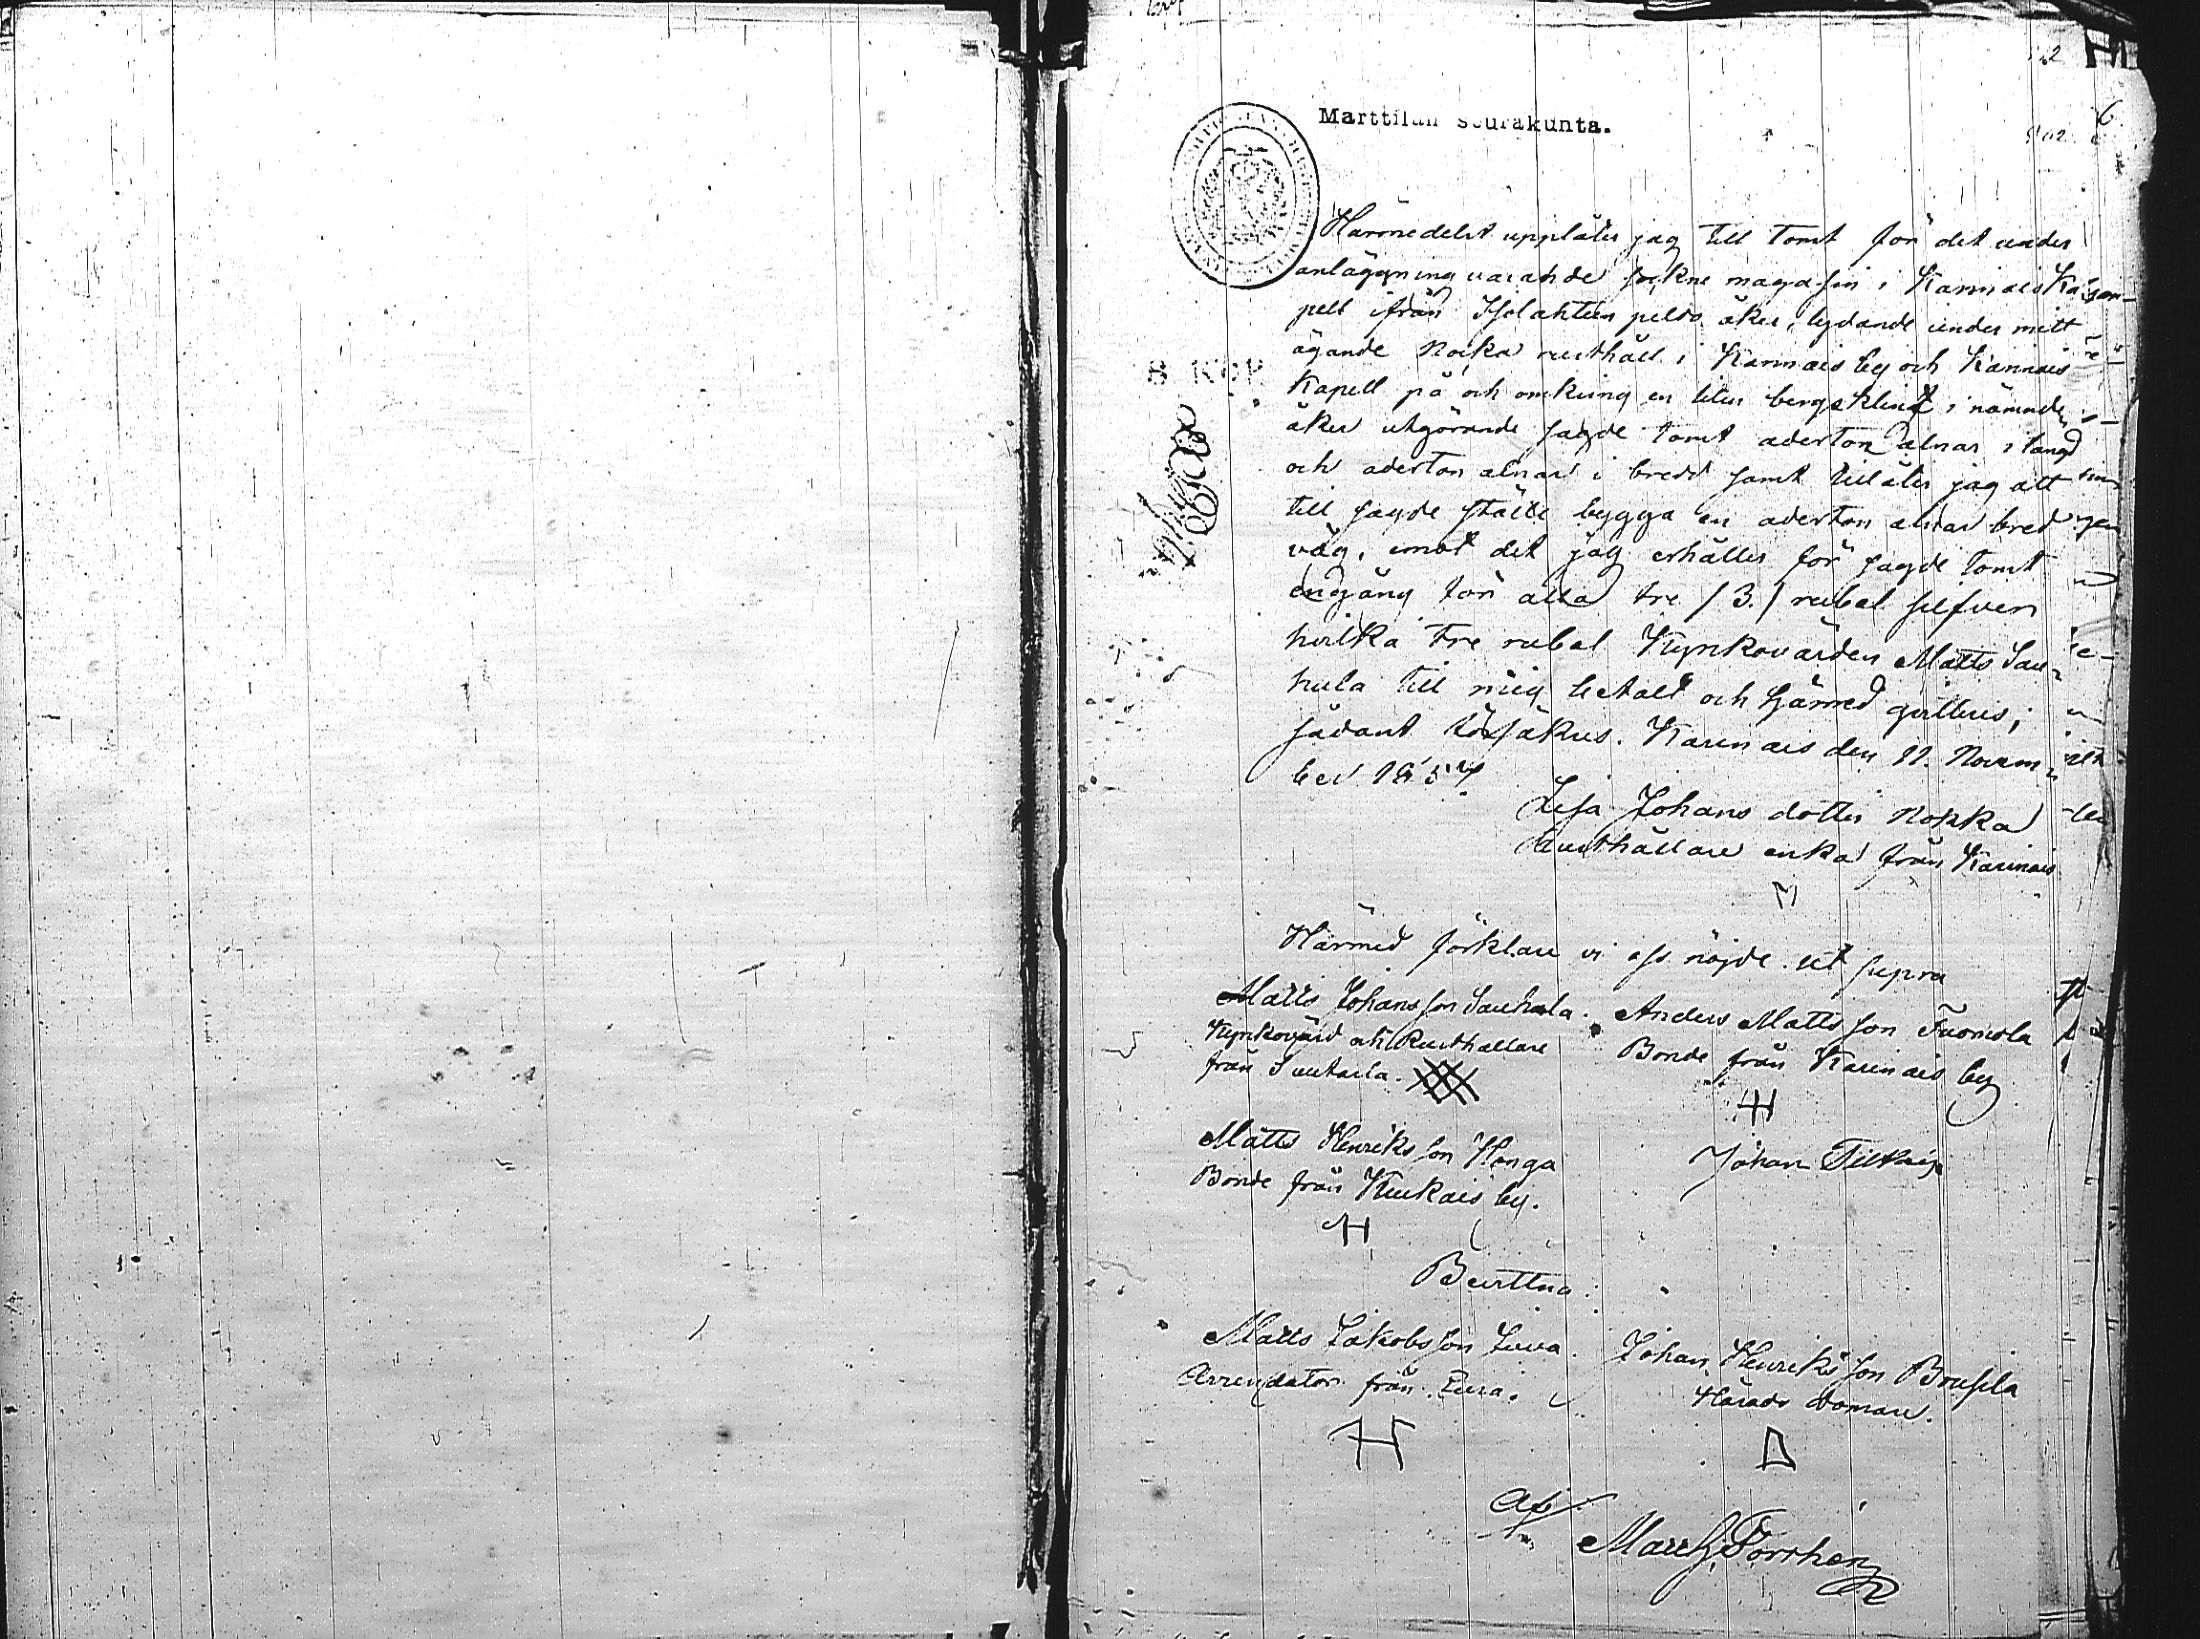 Marttilan seurakunta.
Härmedelst upplåter jag till tomt för det under
anläggning varande sockne magasin i Karinais Ka-
pell ifrån Isolahteen pelto åker, lydande under mitt
ägande Nokka rusthåll i Karinais by och Karinais
Kapell på och omkring en liten bergsklint i nämnde
åker utgörande sagde tomt aderton alnar i längd
och aderton alnar i bredd samt tillåter jag att
till sagde ställe bygga en aderton alnar bred
väg, emot det jag erhåller för sagde tomt
engång för alla tre /3./ rubel silfver
hvilka tre rubel Kyrkovärden Matts Sau-
hula till mig betalt och hjärmed qvitteras;
sådant försäkras. Karinais den 11. Novem-
ber 185
Lisa Johans dotter Nokka
Rusthållare enka från Karinais
Härmed förklare vi oss nöjde. ut supra
Matts Johansson Sauhula. Anders Mattsson Tuomola
Kyrkovärd och Rusthållare Bonde från Karinais by
från Suutarla.
Matts Henriksson Honga Johan
Bonde från Kuukais by.
Bevittna:
Matts Jakobsson Juva. Johan Henriksson Brusila
Arrendator från Eura. Härads domare.
H